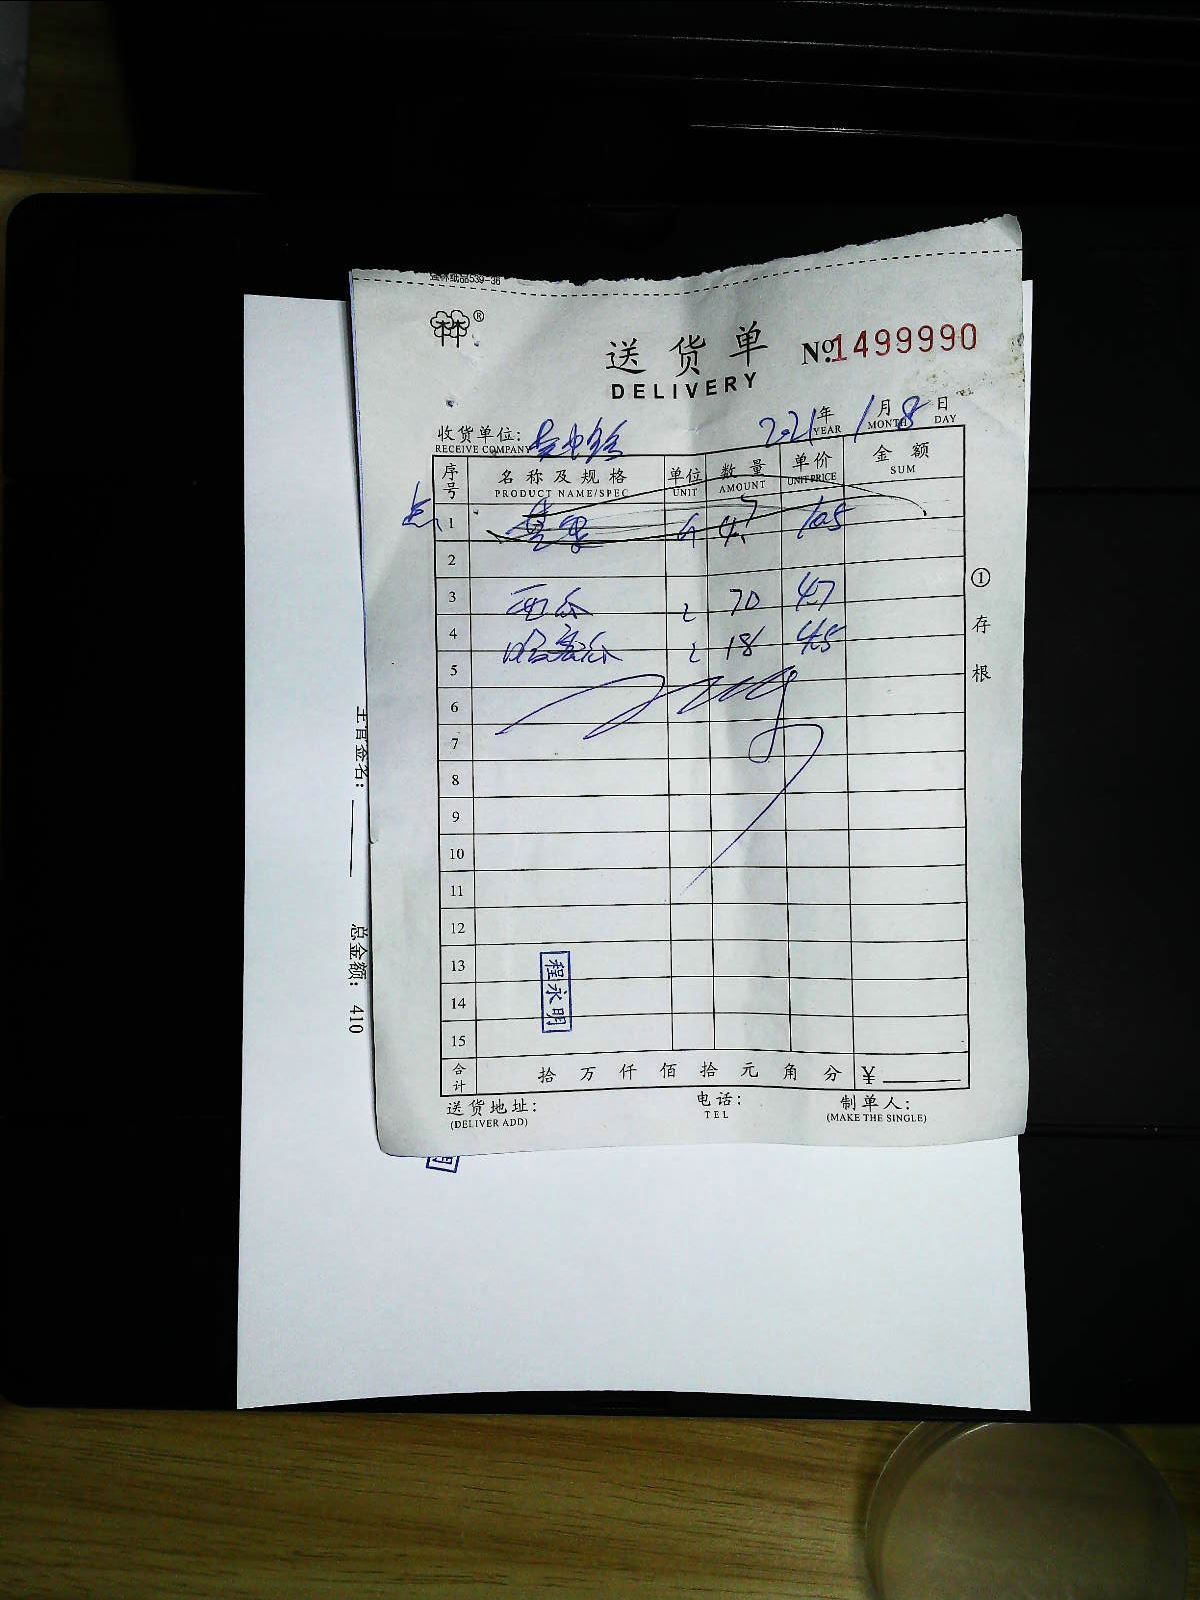 送货单
DELIVERY
№1499990
2021年 1月 8日
YEAR MONTH DAY
收货单位:
RECEIVE COMPANY
序号 名称及规格 单位 数量 单价 金额
PRODUCT NAME/SPEC UNIT AMOUNT UNIT PRICE SUM
1 105
2
3 西瓜 70 4.7
4 哈密瓜 18 4.5
5
6
7
8
9
10
11
12
13
14
15
程永明
合计 拾 万 仟 佰 拾 元 角 分 ¥
送货地址: 电话: 制单人:
(DELIVER ADD) TEL (MAKE THE SINGLE)
① 存根
主管签名: 总金额: 410
明